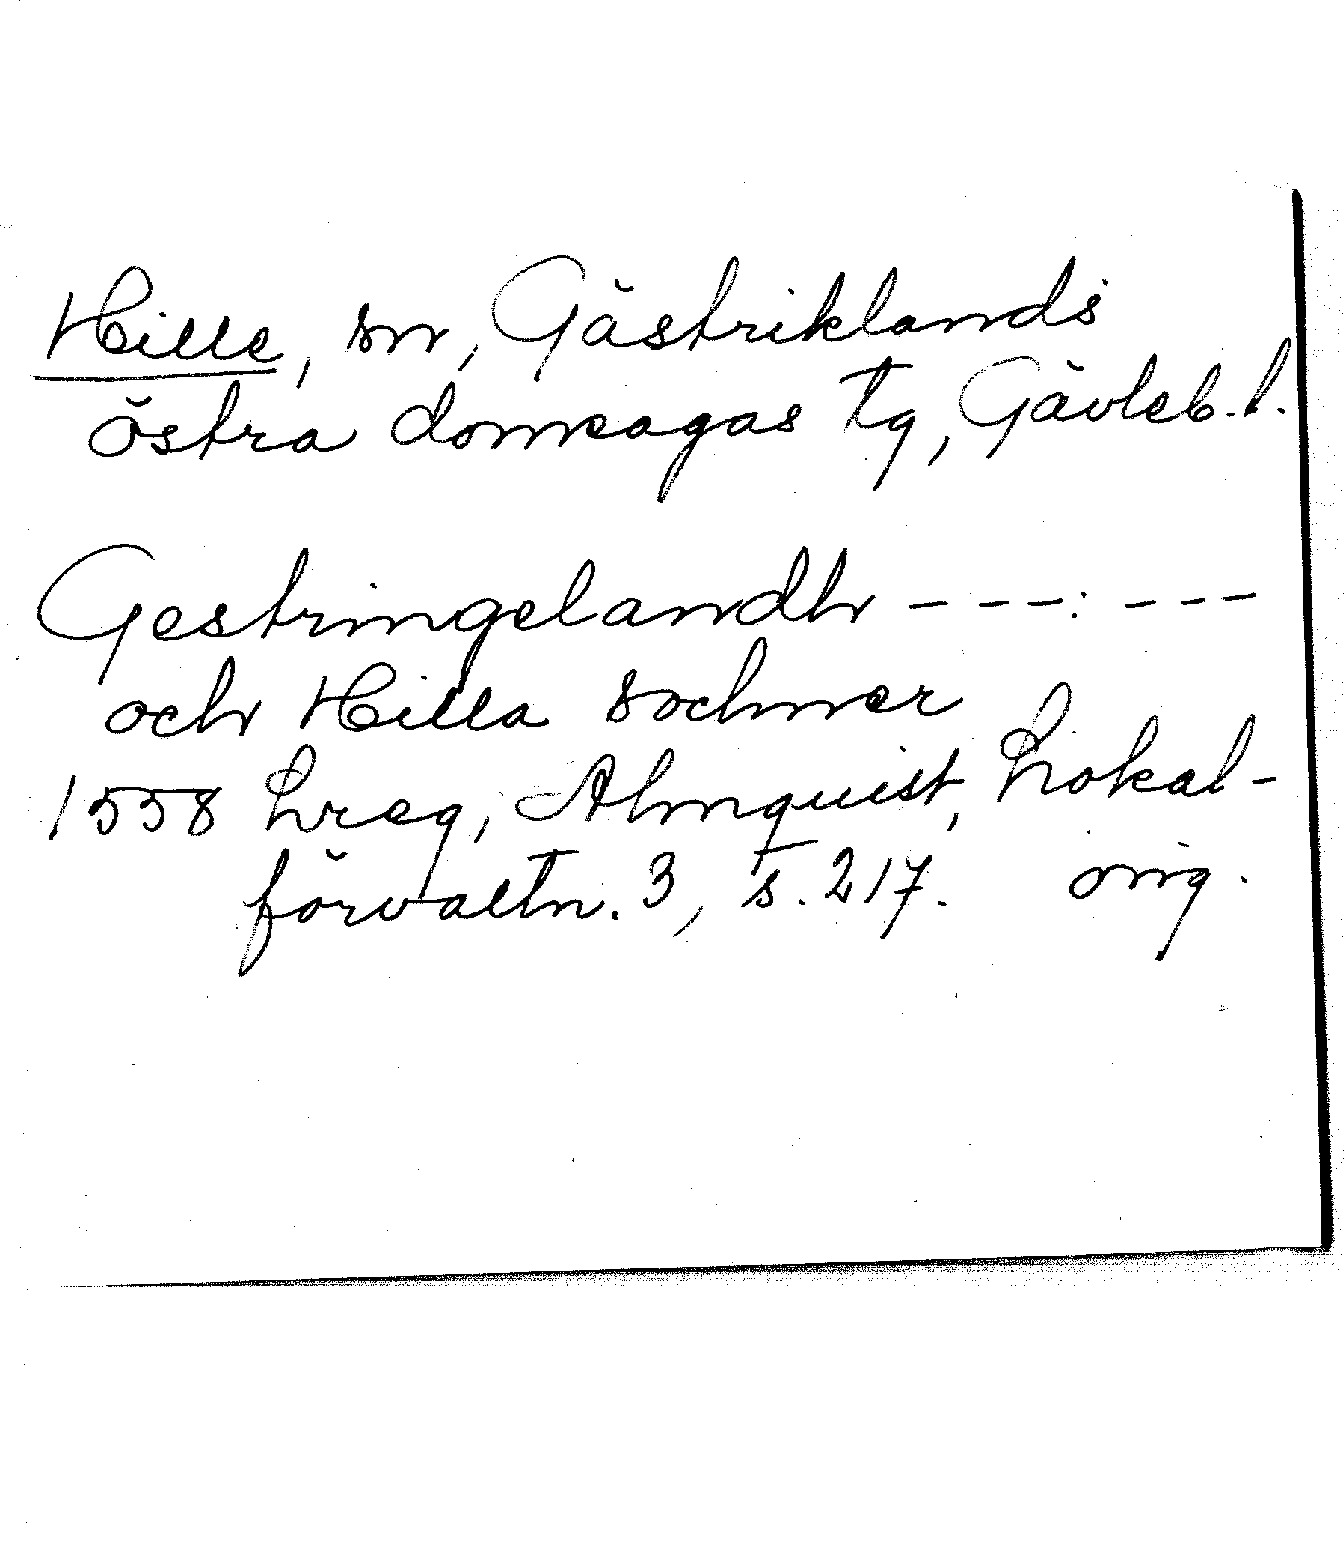 Hille, sn, Gästriklands
östra domsagas tg, Gävleb. l.
Gestringelandh ---: ---
och Hilla sochner
1558 Lreg, Almquist, Lokal-
förvaltn. 3, s. 217. orig.